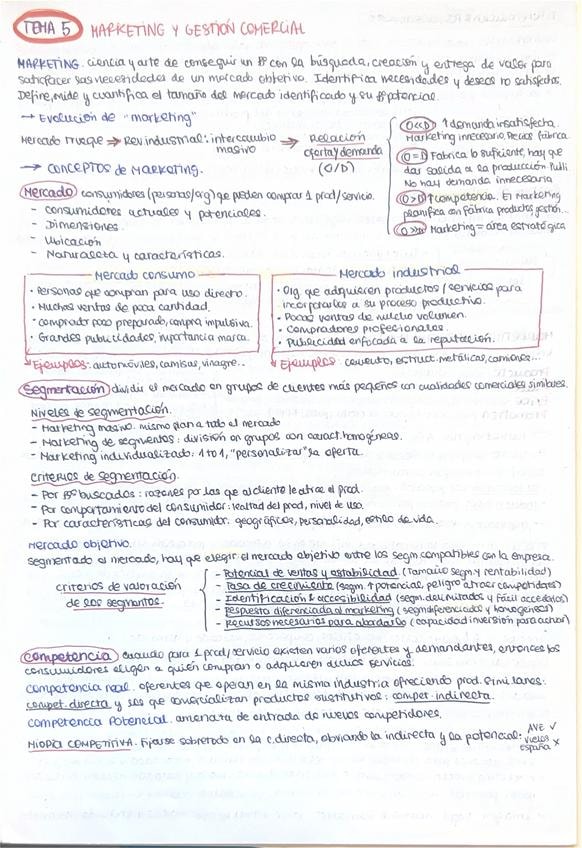 TEMA 5 MARKETING Y GESTIÓN COMERCIAL
MARKETING. ciencia y arte de conseguir un Bº con la búsqueda, creación y entrega de valor para
satisfacer las necesidades de un mercado objetivo. Identifica necesidades y deseos no satisfechos.
Define, mide y cuantifica el tamaño del mercado identificado y su Bº potencial.
→ Evolución de "marketing"
Mercado trueque → Rev industrial: intercambio masivo → Relación oferta y demanda (O/D)
O<D ↑ demanda insatisfecha.
Marketing innecesario. Decide fábrica.
O=D Fabrica lo suficiente, hay que
dar salida a la producción. Publi
No hay demanda innecesaria
O>D ↑ competencia. El Marketing
planifica con fábrica productos, gestion...
O>>D Marketing = área estratégica
→ CONCEPTOS DE MARKETING.
Mercado consumidores (personas/org) que pueden comprar 1 prod/servicio.
- consumidores actuales y potenciales.
- Dimensiones.
- Ubicación
- Naturaleza y características.
Mercado consumo
· Personas que compran para uso directo.
· Muchas ventas de poca cantidad.
· comprador poco preparado, compra impulsiva.
· Grandes publicidades, importancia marca.
Ejemplos: automóviles, camisas, vinagre..
Mercado industrial
· Org que adquieren productos/servicios para
incorporarlos a su proceso productivo.
· Pocas ventas de mucho volumen.
· Compradores profesionales.
· Publicidad enfocada a la reputación.
Ejemplos: cemento, estruct. metálicas, camiones...
Segmentación dividir el mercado en grupos de clientes más pequeños con cualidades comerciales similares.
Niveles de segmentación.
- Marketing masivo. mismo plan a todo el mercado
- Marketing de segmentos: división en grupos con caract. homogéneas.
- Marketing individualizado: 1 to 1, "personalizar" la oferta.
Criterios de segmentación.
- Por Bº buscados: razones por las que al cliente le atrae el prod.
- Por comportamiento del consumidor: lealtad del prod, nivel de uso.
- Por características del consumidor: geográficas, personalidad, estilo de vida.
Mercado objetivo.
segmentado el mercado, hay que elegir el mercado objetivo entre los segm compatibles con la empresa.
criterios de valoración
de los segmentos.
- Potencial de ventas y estabilidad (Tamaño segm y rentabilidad)
- Tasa de crecimiento (segm. ↑ potencial, peligro atraer competidores)
- Identificación & accesibilidad (segm. delimitados y fácil accederlos)
- Respuesta diferenciada al marketing (segm diferenciados y homogéneos)
- Recursos necesarios para abordarlo (capacidad inversión para actuar)
Competencia cuando para 1 prod/servicio existen varios oferentes y demandantes, entonces los
consumidores eligen a quién compran o adquieren dichos servicios.
Competencia real. oferentes que operan en la misma industria ofreciendo prod. similares:
compet. directa y los que comercializan productos sustitutivos: compet. indirecta.
Competencia Potencial. amenaza de entrada de nuevos competidores.
MIOPÍA COMPETITIVA. Fijarse sobretodo en la c. directa, obviando la indirecta y la potencial:
AVE ✓
vuelos
españa ✗